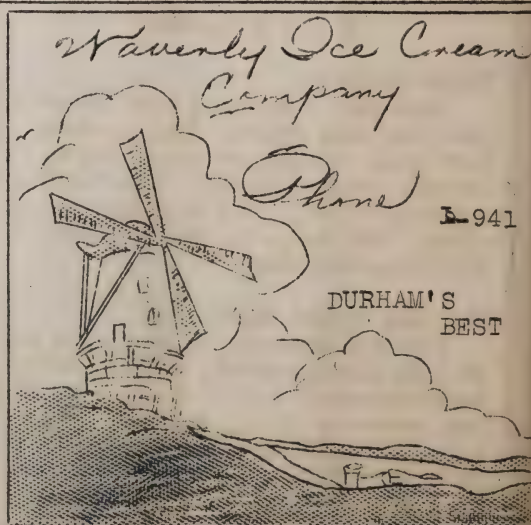 Waverly Ice Cream
Company
Phone
L-941
DURHAM'S
BEST